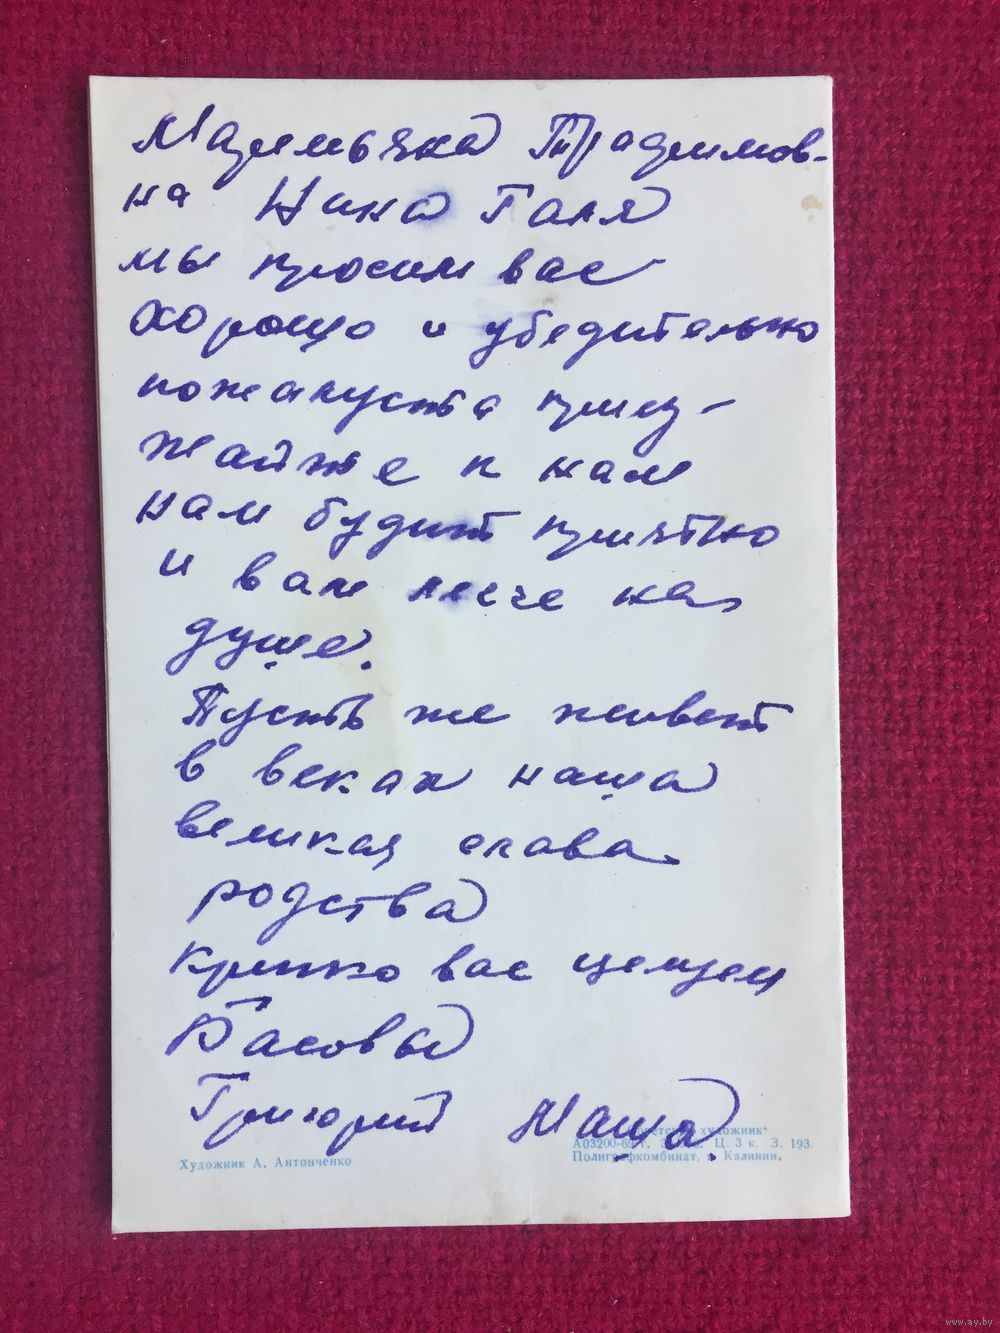 Мацямьяна Традимов-
на Нина Галя
мы просим вас
хорошо и убедительно
пожалуста приез-
жайже к нам
нам будит приятно
и вам легче на
душе.
Пусть же живет
в веках наша
великая слава
родства
крипко вас целуем
Басовы
Григорий Маша.
Художник А. Антонченко
художник"
А03200-69 г. Ц. 3 к. З. 193.
Полиграфкомбинат, г. Калинин,
www.ay.by